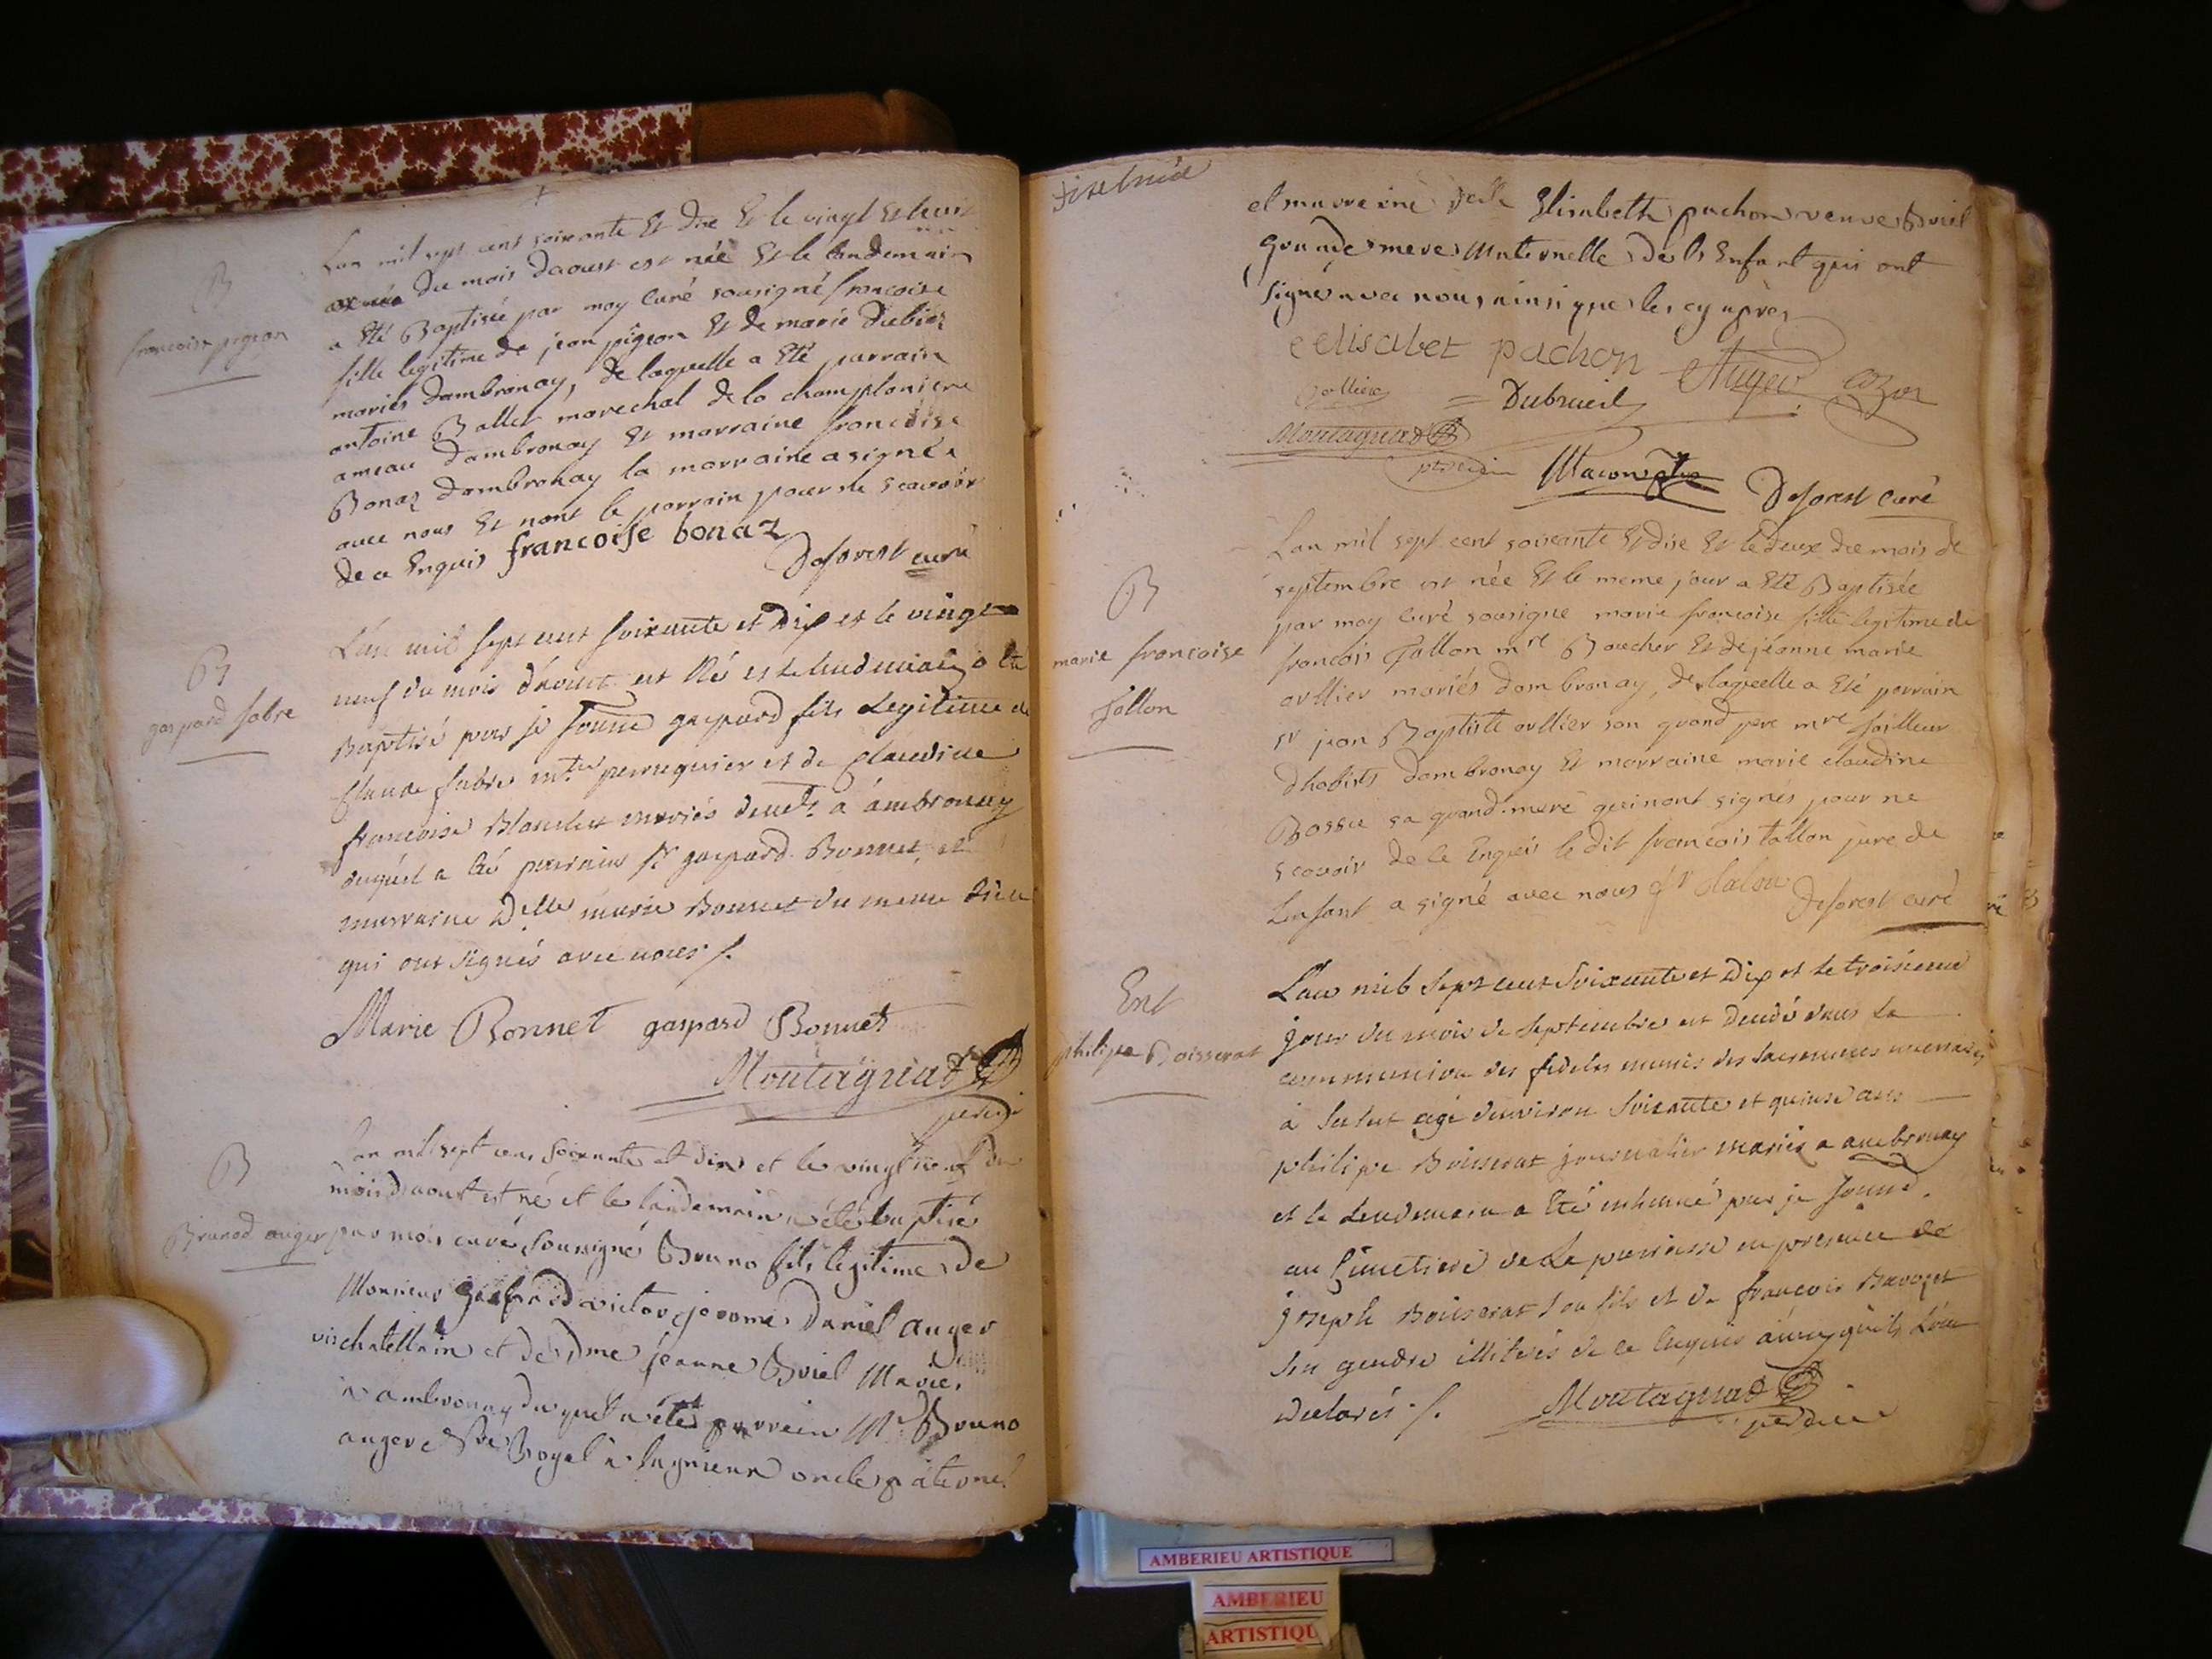 B
francoise pigeon
Lan mil sept cent soixante Et dix Et le vingt Et huit
du mois daoust est née Et le landemain
a Eté Baptisée par moy curé sousigné francoise
fille legitime de jean pigeon Et de marie Dubiez
mariés dambronay, de laquelle a Eté parrain
antoine Ballet marechal de la champlaniere
ameau dambronay Et marraine francoise
Bonaz dambronay la marraine a signée
avec nous Et nont le parrain pour ne scavoir
de ce Enquis francoise bonaz
Deforest curé
B
gaspard fabre
L'an mil sept cent soixante et dix et le vingt
neuf du mois d'aoust est Né et le lendemain a été
Baptisé par je sousné gaspard fils Legitime de
Claude fabre mtre perruquier et de Claudine
francoise Blanchet mariés demts a ambronay
duquel a été parrain sr gaspard Bonnet et
marraine Delle marie Bonnet du meme Lieu
qui ont signés avec nous /.
Marie Bonnet gaspard Bonnet
Montagnad
B
Brunod auger
Lan mil sept cens soixante et dix et le vingt neuf du
mois daoust est né et le landemain a été baptisé
par moi curé soussigné Bruno fils legitime de
Monsieur gaspard victor jerome daniel auger
vichatellain et de dme jeanne Briel Mariés
a ambronay duquel a été parrein Mr Bruno
auger Royal a lagnieux oncle paternel
et marreine delle Elisabeth pachon veuve Briel
Grande mere Maternelle de l'Enfant qui ont
signé avec nous ainsi que les cy après
eelisabet pachon Auger
Dubrueil
Montagnad
Deforest curé
B
marie francoise
tallon
Lan mil sept cent soixante Et dise Et le deux du mois de
septembre est née Et le meme jour a Eté Baptisée
par moy curé sousigné marie francoise fille legitime de
francois Tallon mre Boucher Et de jeanne marie
orllier mariés dambronay, de laquelle a Eté parrain
sr jean Baptiste orllier son grand pere mre tailleur
dhabits dambronay Et marraine marie claudine
Bossu sa grand mere qui nont signés pour ne
scavoir de ce Enquis le dit francois tallon pere de
Lenfant a signé avec nous fr Talon
Deforest curé
Ent
philipe Boisserat
L'an mil sept cent soixante et dix et le troisieme
jour du mois de septembre est decedé dans la
communion des fideles munis des sacremens necessaires
à salut agé d'environ soixante et quinse ans
philipe Boisserat journalier mariés a ambronay
et le lendemain a été inhumé par je sousné.
au Cimetiere de La paroisse en presence de
joseph Boisserat son fils et de francois Bavoset
son gendre illiterés de ce Enquis ainsy qu'ils L'ont
declarés ./. Montagnad
AMBERIEU ARTISTIQUE
AMBERIEU
ARTISTIQU